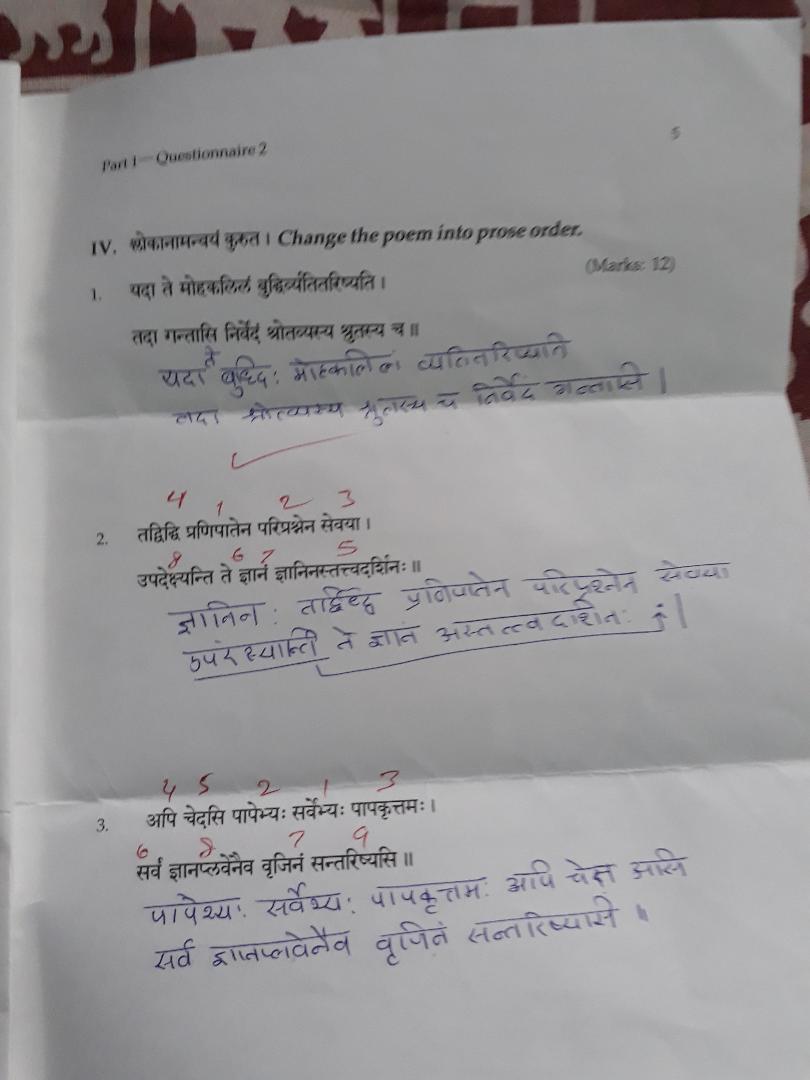 5
Part 1—Questionnaire 2
IV. श्लोकानामन्वयं कुरुत । Change the poem into prose order.
(Marks: 12)
1. यदा ते मोहकलिलं बुद्धिर्व्यतितरिष्यति ।
तदा गन्तासि निर्वेदं श्रोतव्यस्य श्रुतस्य च ॥
यदा ते बुध्दिः मोहकलिलं व्यतितरिष्यति
तदा श्रोतव्यस्य श्रुतस्य च निर्वेदं गन्तासि ।
4 1 2 3
2. तद्विद्धि प्रणिपातेन परिप्रश्नेन सेवया ।
8 6 7 5
उपदेक्ष्यन्ति ते ज्ञानं ज्ञानिनस्तत्त्वदर्शिनः ॥
ज्ञानिनः तद्विध्दि प्रणिपातेन परिप्रश्नेन सेवया
ते ज्ञानं अस्तत्त्वदर्शिनः ।
4 5 2 1 3
3. अपि चेदसि पापेभ्यः सर्वेभ्यः पापकृत्तमः ।
6 8 7 9
सर्वं ज्ञानप्लवेनैव वृजिनं सन्तरिष्यसि ॥
पापेभ्यः सर्वेभ्यः पापकृत्तमः अपि असि
सर्वं ज्ञानप्लवेनैव वृजिनं सन्तरिष्यसि ॥